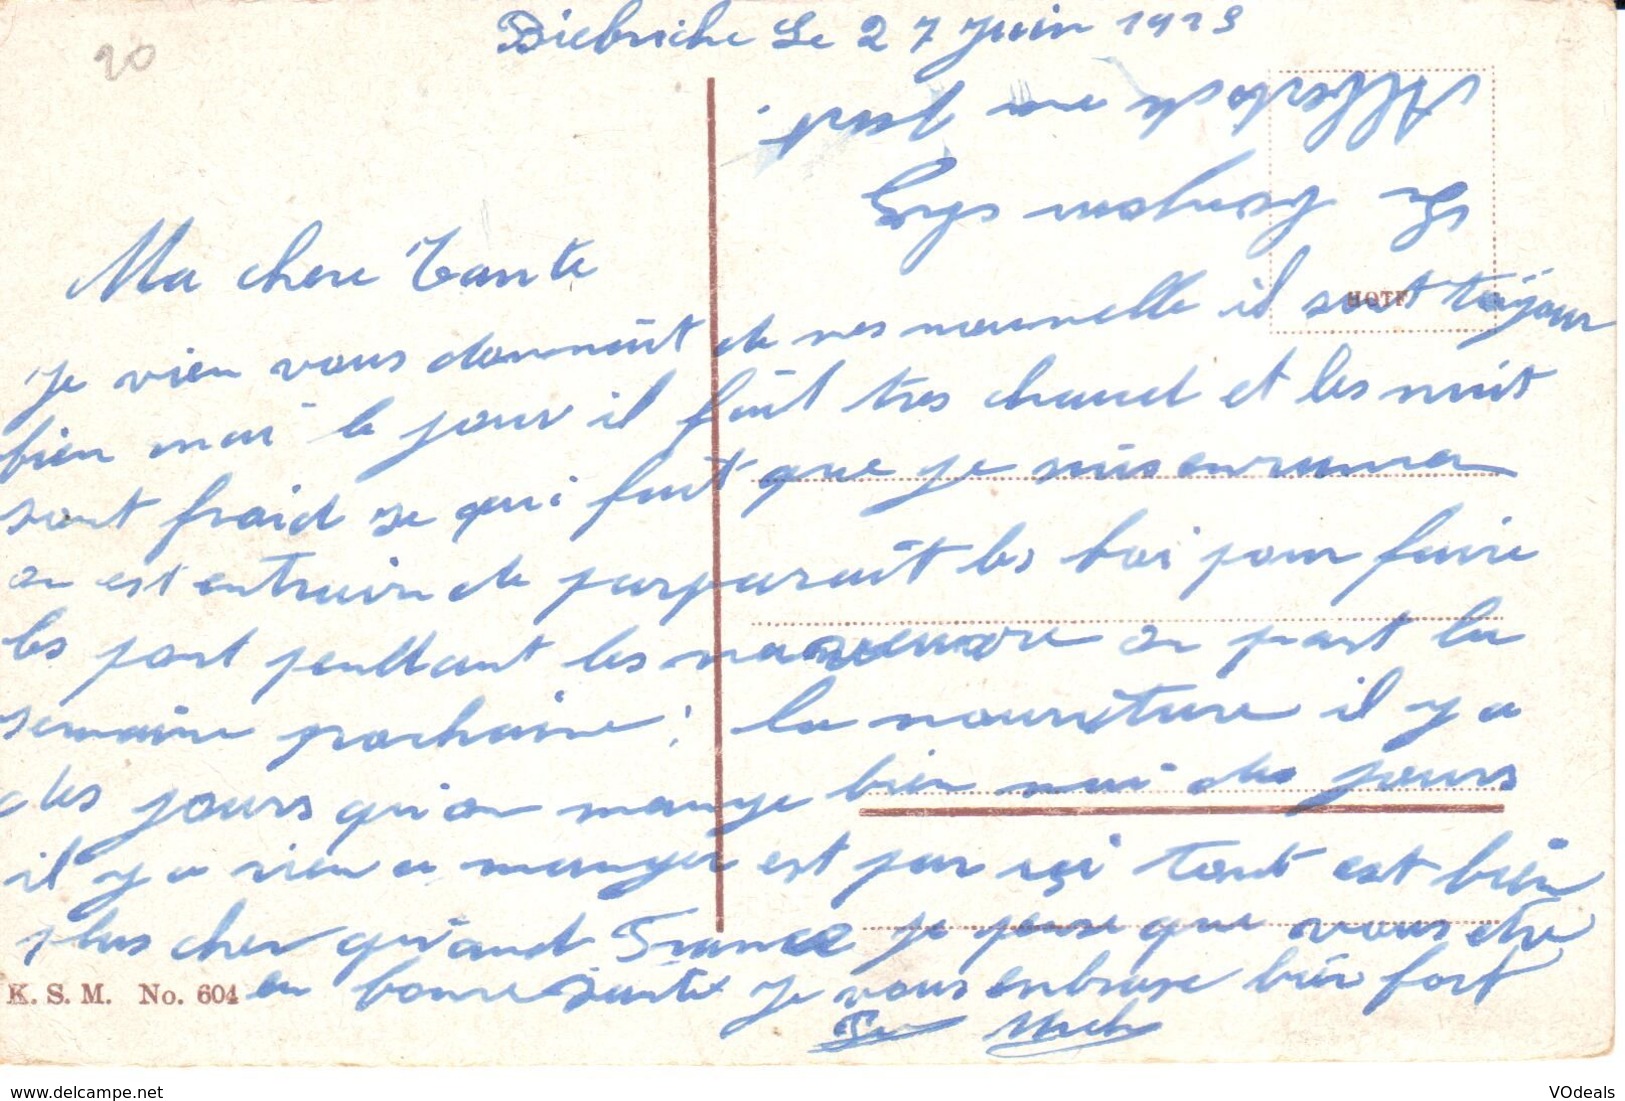 20
Biebriche Le 27 Juin 1923
Ma chere Tante
je vien vous donnait de nes nouvelle il sont toujour
bien mai le jour il fait tres chaud et les nuit
sont fraid se qui fait que je suis enruma
on est entrain de parparait les boi pour faire
les pont penddant les manoeuvre on part la
semaine prochaine; la nouriture il y a
des jours qu'on mange bien mai des jours
il y a rien a manger est par içi tout est bien
plus cher qu'and France je pense que vous etre
en bonne santé je vous enbrase bien fort
K. S. M. No. 604